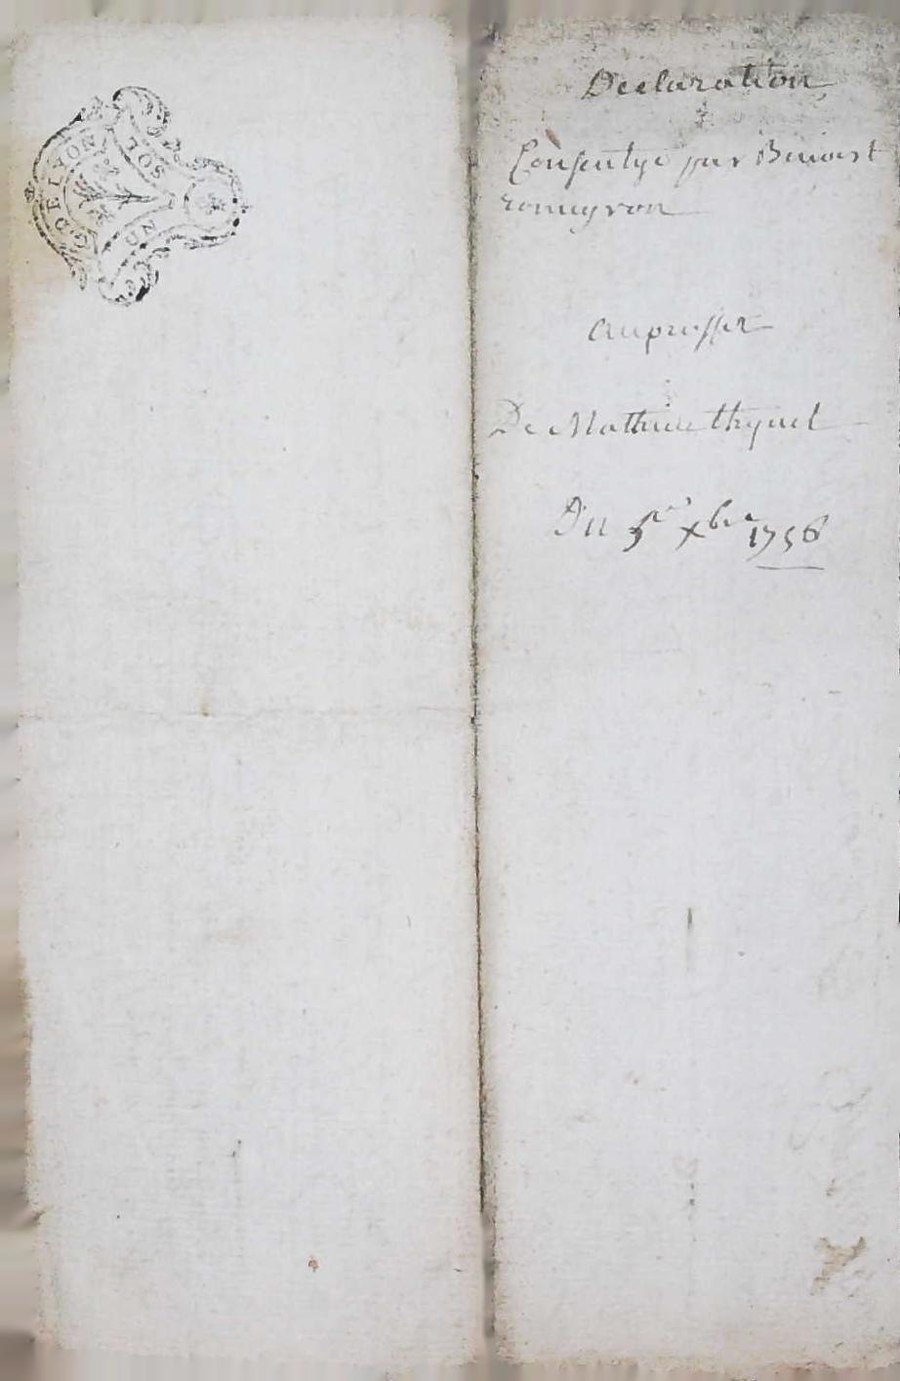 G. DE LYON
UN SOL
Declaration
Consentye par Benoist
romeyron
au proffit
De Mathieu
Du 5e Xbre 1756